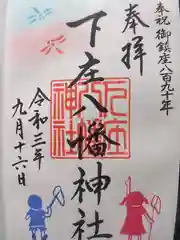 奉祝 御鎮座八百九十年
奉拝
下庄八幡神社
令和三年
九月十六日